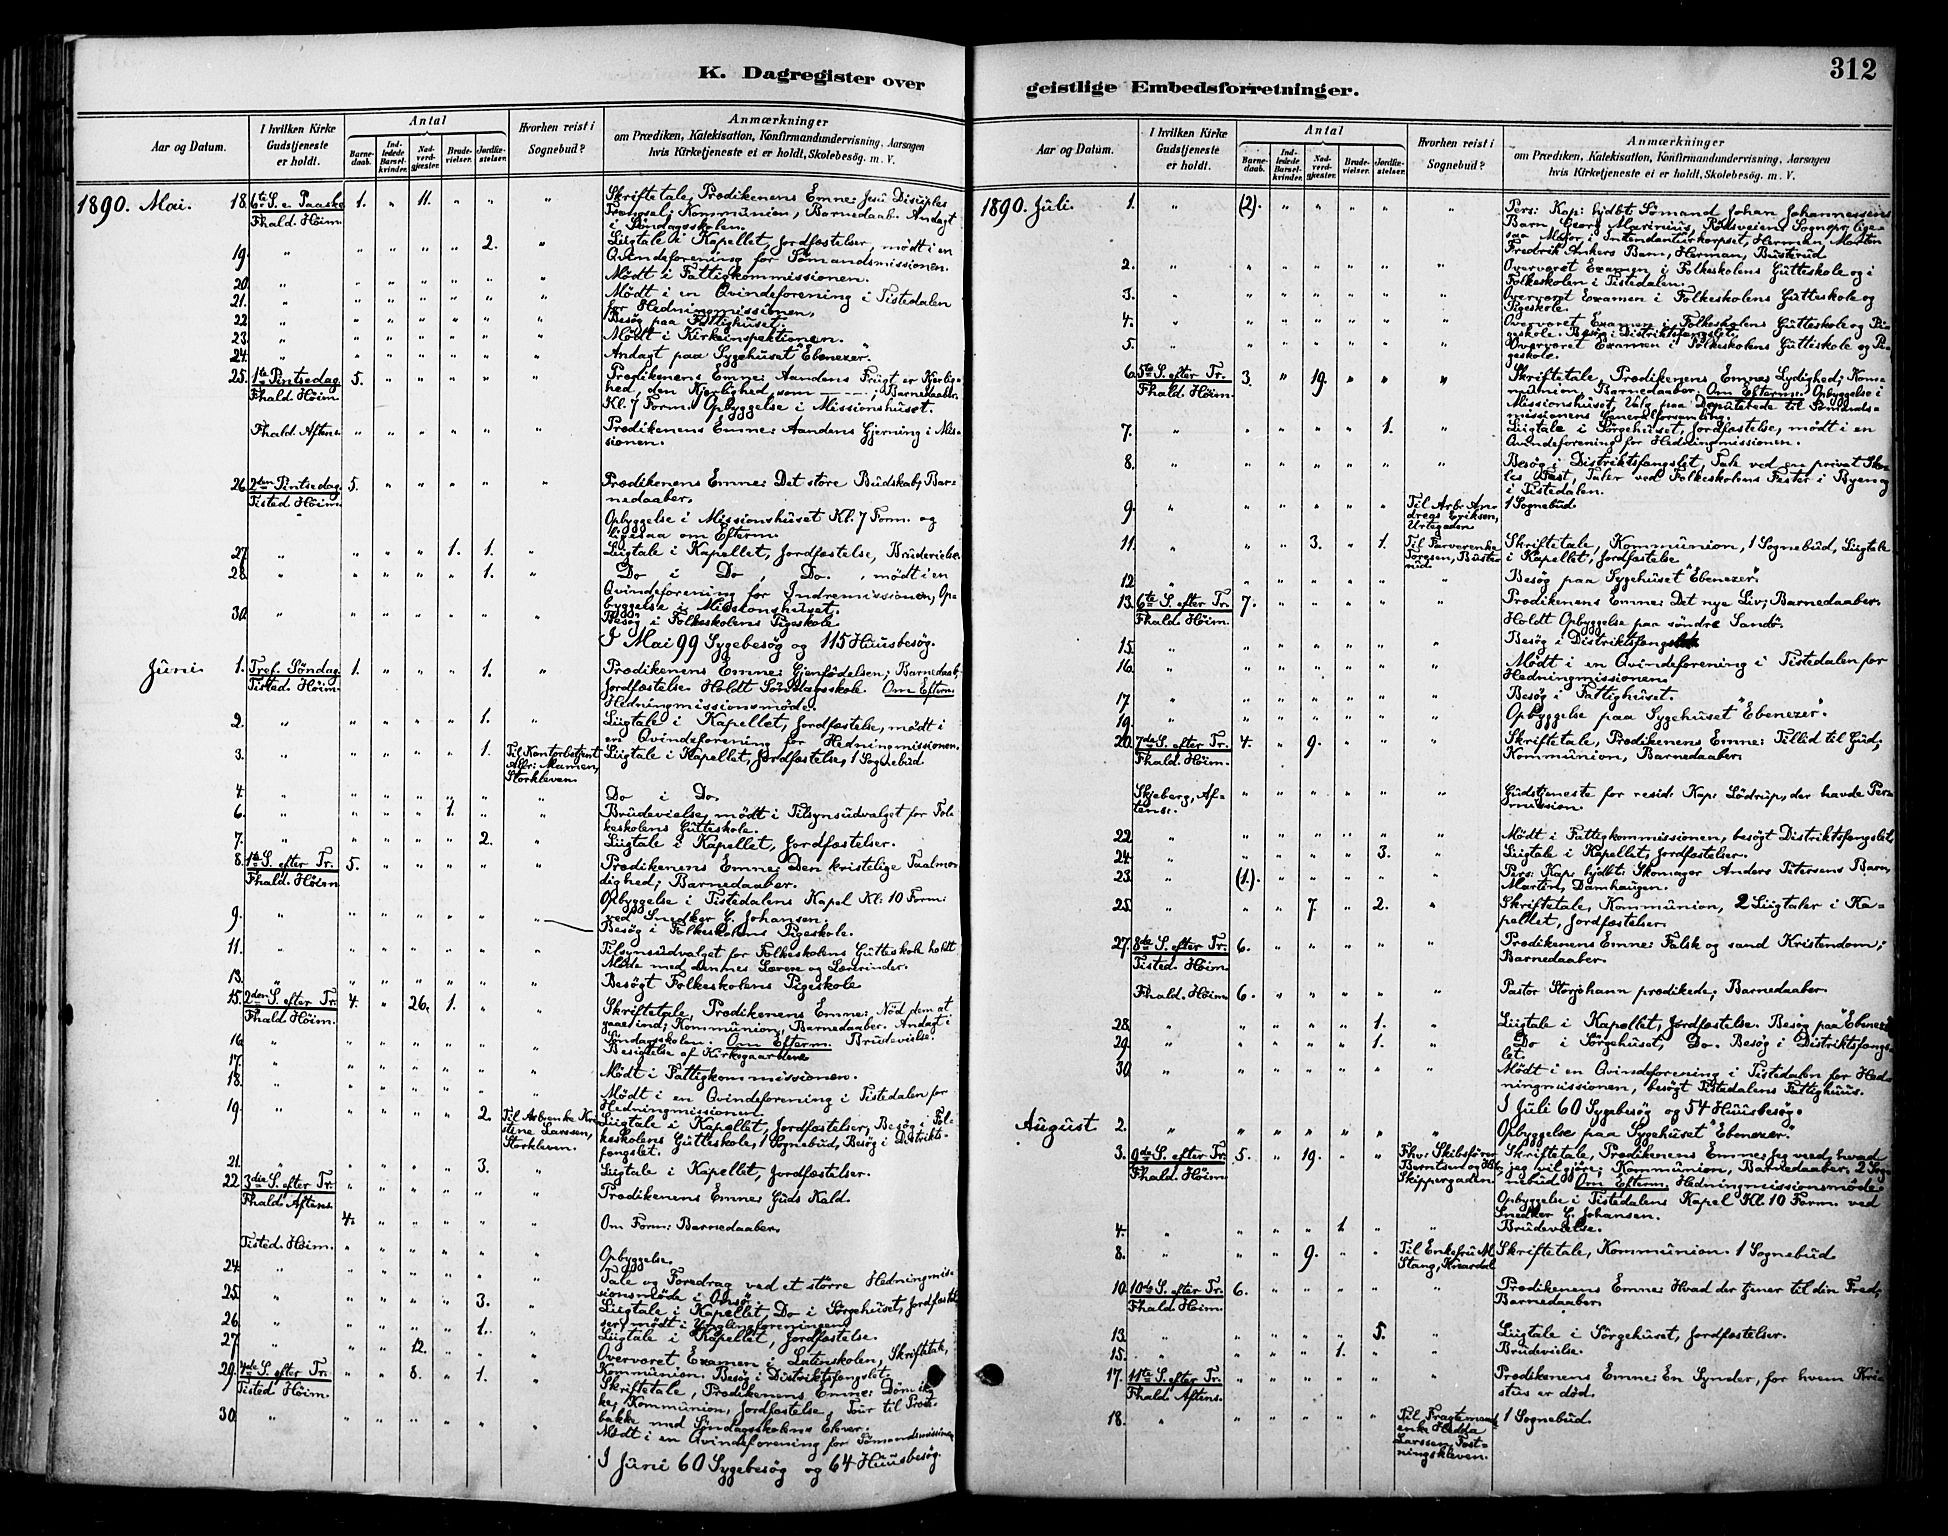 K. Dagregister over
Aar og Datum.
I hvilken Kirke
Gudstjeneste
er holdt.
Antal
Barne-
daab.
Ind-
ledede
Barsel-
kvinder.
Nad-
verd-
gjester.
Brude-
vielser.
Jordfæ-
stelser.
Hvorhen reist i
Sognebud?
Anmærkninger
om Prædiken, Katekisation, Konfirmandundervisning, Aarsagen
hvis Kirketjeneste ei er holdt, Skolebesøg. m. V.
1890. Mai. 18. 6te S. e. Paaske 1. " 11. " " " Skriftetale, Prædikenens Emne: Jesu Disciples
Fhald. Höim. Trængsel; Kommunion, Barnedaab. Andagt
i Søndagsskolen.
19. " " " " " 2. " Liigtale i Kapellet, Jordfæstelser, mødt i en
Qvindeforening for Sømandsmissionen.
20. " " " " " " " Mødt i Fattigkommissionen.
21. " " " " " " " Mødt i en Qvindeforening i Tistedalen
for Hedningmissionen,
22 " " " " " " " Besøg paa Fattighuset.
23. " " " " " " " Mødt i Kirkeinspektionen.
24. " " " " " " " Andagt paa Sygehuset "Ebenezer."
25. 1ste Pintsedag 5. " " " " " Prædikenens Emne: Aandens Frugt er Kjerlig-
Fhald Höim. hed, den Kjerlighed, som ———; Barnedaaber.
Kl. 7 Form. Opbyggelse i Missionshuset.
Fhald. Aftens. " " " " " " Prædikenens Emne: Aandens Gjerning i Mis-
sionen.
26. 2den Pintsedag 5. " " " " " Prædikenens Emne: Det store Budskab; Bar-
Tisted. Höim. nedaaber.
Opbyggelse i Missionshuset Kl. 7 Form. og
ligesaa om Efterm.
27. " " " " 1. 1. " Liigtale i Kapellet, Jordfæstelse, Brudevielse.
28. " " " " " 1. " Do i Do, Do. , mødt i en
Qvindeforening for Indremissionen, Op-
byggelse i Missionshuset.
30. " " " " " " " Besøg i Folkeskolens Pigeskole
I Mai 99 Sygebesøg og 115 Huusbesøg.
Juni 1. Tref. Søndag 1. " " " 1. " Prædikenens Emne: Gjenfødelsen; Barnedaab,
Tisted. Höim. Jordfæstelse. Holdt Søndagsskole. Om Efterm.
Hedningmissionsmøde.
2. " " " " " 1. " Liigtale i Kapellet, Jordfæstelse, mødt i
en Qvindeforening for Hedningmissionen.
3. " " " " " 1. Til Kontorbetjent Liigtale i Kapellet, Jordfæstelse, 1 Sognebud
Alfr: Mamen,
Storkleven.
4. " " " " " " " Do i Do
6. " " " " 1. " " Brudevielse, mødt i Tilsynsudvalget for Fol-
keskolens Gutteskole.
7. " " " " " 2. " Liigtale i Kapellet, Jordfæstelser.
8. 1ste S. efter Tr. 5. " " " " " Prædikenens Emne: Den kristelige Taalmo-
Fhald. Höim dighed; Barnedaaber.
Opbyggelse i Tistedalens Kapel Kl. 10 Form:
ved Snedker G. Johansen.
9. " " " " " " " Besøg i Folkeskolens Pigeskole.
11. " " " " " " " Tilsynsudvalget for Folkeskolens Gutteskole holdt
Møde med dennes Lærere og Lærerinder.
13. " " " " " " " Besøgt Folkeskolens Pigeskole
15. 2den S. efter Tr. 4. " 26. 1. " " Skriftetale, Prædikenens Emne: Nød dem at
Fhald. Höim. gaae ind; Kommunion, Barnedaaber. Andagt i
Søndagsskolen. Om Efterm. Brudevielse.
16. " " " " " " " Besigtelse af Kirkegaardene
17. " " " " " " " Mødt i Fattigkommissionen.
18. " " " " " " " Mødt i en Qvindeforening i Tistedalen for
Hedningmissionen
19. " " " " " 2. Til Arb.enke Kri- Liigtale i Kapellet, Jordfæstelser, Besøg i Fol-
stine Larssen, keskolens Gutteskole, 1 Sognebud, Besøg i Distrikts-
Storkleven. fængslet.
21. " " " " " 3. " Liigtale i Kapellet, Jordfæstelser.
22. 3die S. efter Tr. " " " " " " Prædikenens Emne: Guds Kald.
Fhald. Aftens.
4. " " " " " Om Form: Barnedaaber.
Tisted. Höim. " " " " " " Opbyggelse.
24. " " " " " " " Tale og Foredrag ved et større Hedningmis-
sionsmøde i Onsø.
25. " " " " " 3. " Liigtale i Kapellet, Do i Sørgehuset, Jordfæstel-
ser, mødt i Ynglingeforeningen
26. " " " " " 1. " Liigtale i Kapellet, Jordfæstelse.
27. " " " 12. " " " Overværet Examen i Latinskolen, Skriftetale,
Kommunion. Besøg i Distriktsfængslet.
29. 4de S. efter Tr. " " 8. " 1. " Skriftetale, Prædikenens Emne: Døm ik-
Tisted Höim. ke; Kommunion, Jordfæstelse, Tour til Præst-
bakke med Søndagsskolens Elever.
30. " " " " " " " Mødt i en Qvindeforening for Sømandsmissionen
I Juni 60 Sygebesøg og 64 Huusbesøg.
geistlige Embedsforretninger.
312
Aar og Datum.
I hvilken Kirke
Gudstjeneste
er holdt.
Antal
Barne-
daab.
Ind-
ledede
Barsel-
kvinder.
Nad-
verd-
gjester.
Brude-
vielser.
Jordfæ-
stelser.
Hvorhen reist i
Sognebud?
Anmærkninger
om Prædiken, Katekisation, Konfirmandundervisning, Aarsagen
hvis Kirketjeneste ei er holdt, Skolebesøg. m. V.
1890. Juli. 1. " (2). " " " " " Pers: Kap: hjdbt Sømand Johan Johannessens
Barn Georg Marinius, Rødsveien Sognepr. lige-
saa Major i Intendanturkorpset, Herman Martin
Fredrik Ankers Barn, Herman, Busterud
2. " " " " " " " Overværet Examen i Folkeskolens Gutteskole og i
Folkeskolen i Tistedalen.
3. " " " " " " " Overværet Examen i Folkeskolens Gutteskole og
Pigeskole.
4. " " " " " " " Overværet Examen i Folkeskolens Gutteskole og Pi-
geskole. Besøg i Distriktsfængslet.
5. " " " " " " " Overværet Examen i Folkeskolens Gutteskole og Pi-
geskole.
6. 5te S. efter Tr. 3. " 19. " " " Skriftetale, Prædikenens Emne: Lydighed; Kom-
Fhald. Höim. munion, Barnedaaber. Om Efterm: Opbyggelse i
Missionshuset, Valg paa Deputerede til Sømands-
missionens Generalforsamling.
7. " " " " " 1. " Liigtale i Sørgehuset, Jordfæstelse, mødt i en
Qvindeforening for Hedningmissionen.
8. " " " " " " Besøg i Distriktsfængslet, Tale ved en privat Sko-
les Fest, Taler ved Folkeskolens Fester i Byen og
i Tistedalen.
9. " " " " " " Til Arb: An- 1 Sognebud
dreas Eriksen,
Urtegaden
11. " " " 3. " 1. Til Farverenke Skriftetale, Kommunion, 1 Sognebud, Liigtale
Torgesen, Buste- i Kapellet, Jordfæstelse
rud
12 " " " " " " " Besøg paa Sygehuset "Ebenezer".
13. 6te S. efter Tr. 7. " " " " " Prædikenens Emne: Det nye Liv; Barnedaaber.
Fhald. Höim. Holdt Opbyggelse paa søndre Sandö.
15. " " " " " " " Besøg i Distriktsfængslet
16. " " " " " " " Mødt i en Qvindeforening i Tistedalen for
Hedningmissionen.
17. " " " " " " " Besøg i Fattighuset.
19. " " " " " " " Opbyggelse paa Sygehuset "Ebenezer".
20. 7de S. efter Tr. 4. " 9. " " " Skriftetale, Prædikenens Emne: Tillid til Gud;
Fhald. Höim. Kommunion, Barnedaaber.
Skjeberg, Af- " " " " " " Gudstjeneste for resid: Kap: Lödrup, der havde Per-
tens. mission
22. " " " " " " " Mødt i Fattigkommissionen, besøgt Distriktsfængslet
24. " " " " " 3. " Liigtale i Kapellet, Jordfæstelser.
23. " (1). " " " " " Pers: Kap: hjdbt: Skomager Anders Petersens Barn,
Martin, Damhaugen.
25. " " " 7. " 2. " Skriftetale, Kommunion, 2 Liigtaler i Ka-
pellet, Jordfæstelser.
27. 8de S. efter Tr. 6. " " " " " Prædikenens Emne: Falsk og sand Kristendom;
Tisted. Höim. Barnedaaber.
Fhald. Höim. 6. " " " " " Pastor Storjohann prædikede; Barnedaaber.
28. " " " " " 1. " Liigtale i Kapellet, Jordfæstelse. Besøg paa "Ebenezer
29. " " " " " 1. " Do i Sørgehuset, Do. Besøg i Distriktsfængs-
let.
30. " " " " " " " Mødt i en Qvindeforening i Tistedalen for Hed-
ningmissionen, besøgt Tistedalens Fattighuus.
I Juli 60 Sygebesøg og 54 Huusbesøg.
August 2. " " " " " " " Opbyggelse paa Sygehuset "Ebenezer."
3. 9de S. efter Tr. 5. " 19. " " Fhv: Skibsfører Skriftetale, Prædikenens Emne: Jeg veed, hvad
Fhald. Höim. Berntsen og jeg vil gjøre; Kommunion, Barnedaaber. 2 Sog-
Skippergaden nebud Om Efterm. Hedningmissionsmøde
Opbyggelse i Tistedalens Kapel Kl. 10 Form. ved
Snedker G. Johansen.
4. " " " " 1 " " Brudevielse.
8. " " " 9. " " Til Enkefru M. Skriftetale, Kommunion. 1 Sognebud
Stang, Knardal
10. 10de S. efter Tr. 6. " " " " " Prædikenens Emne: Hvad der tjener til din Fred;
Fhald. Höim. Barnedaaber.
13. " " " " " 5. " Liigtale i Sørgehuset, Jordfæstelser.
15. " " " " 1. " " Brudevielse.
17. 11te S. efter Tr. " " " " " " Prædikenens Emne: En Synder, for hvem Kri-
Fhald Aftens. stus er død.
18. " " " " " " Til Fragtemands- 1 Sognebud.
enke Hedda
Larssen, Fæst-
ningskleven.